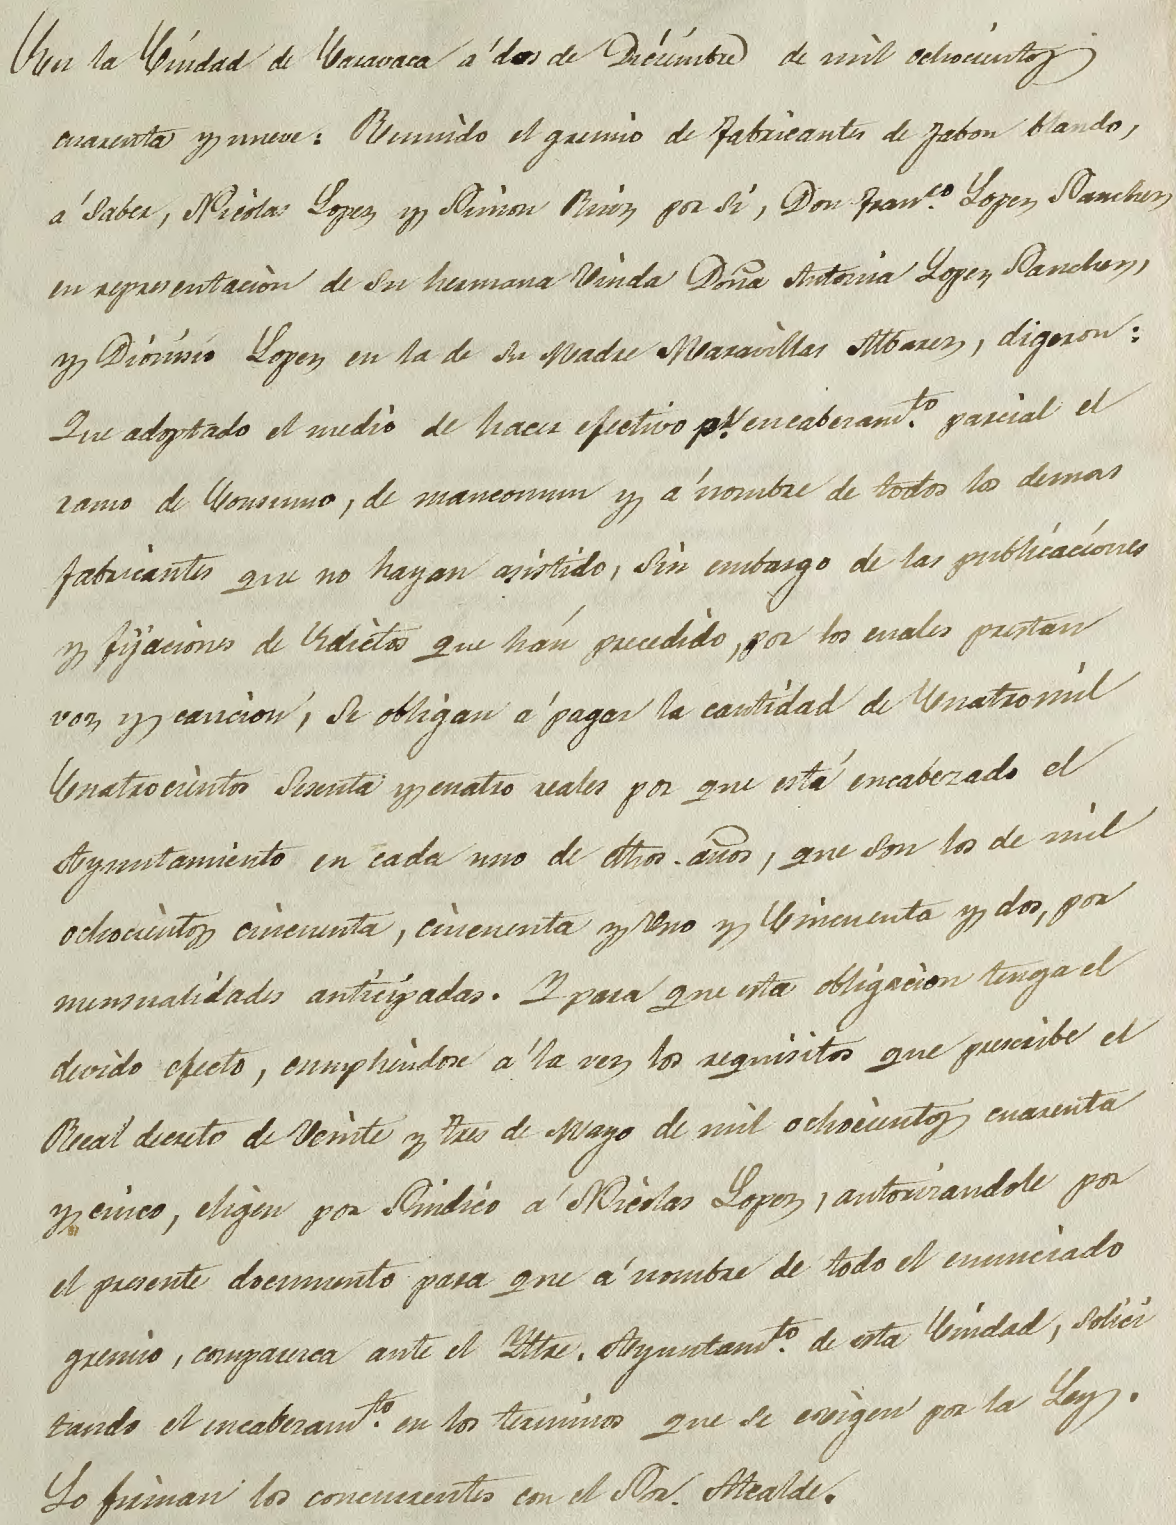 En la Ciudad de Caravaca á dos de Diciembre de mil ochocientos
cuarenta y nueve: Reunido el gremio de fabricantes de Jabon blando,
á Saber, Nicolas Lopez y Simon Ruiz por Si, Don Fran.co Lopez Sanchez
en representacion de Su hermana Viuda Doña Antonia Lopez Sanchez,
y Dionisio Lopez en la de Su Madre Maravillas Albarez, digeron:
Que adoptado el medio de hacer efectivo pr. encabezam.to parcial el
ramo de Consumo, de mancomun y á nombre de todos los demas
fabricantes que no hayan asistido, Sin embargo de las publicaciones
y fijaciones de Edictos que hán precedido, por los cuales prestan
voz y caucion, Se obligan á pagar la cantidad de Cuatro mil
Cuatrocientos Sesenta y cuatro reales por que está encabezado el
Ayuntamiento en cada uno de dhos. años, que Son los de mil
ochocientos cincuenta, cincuenta y Uno y Cincuenta y dos, por
mensualidades anticipadas. Y para que esta obligacion tenga el
devido efecto, cumpliendose á la vez los requisitos que prescribe el
Real decreto de Veinte y tres de Mayo de mil ochocientos cuarenta
y cinco, eligen por Sindico á Nicolas Lopez, autorizandole por
el presente documento para que á nombre de todo el enunciado
gremio, comparezca ante el Yltre. Ayuntam.to de esta Ciudad, Solici
tando el encabezam.to en los terminos que Se exigen por la Ley.
Lo firman los concurrentes con el Sor. Alcalde.